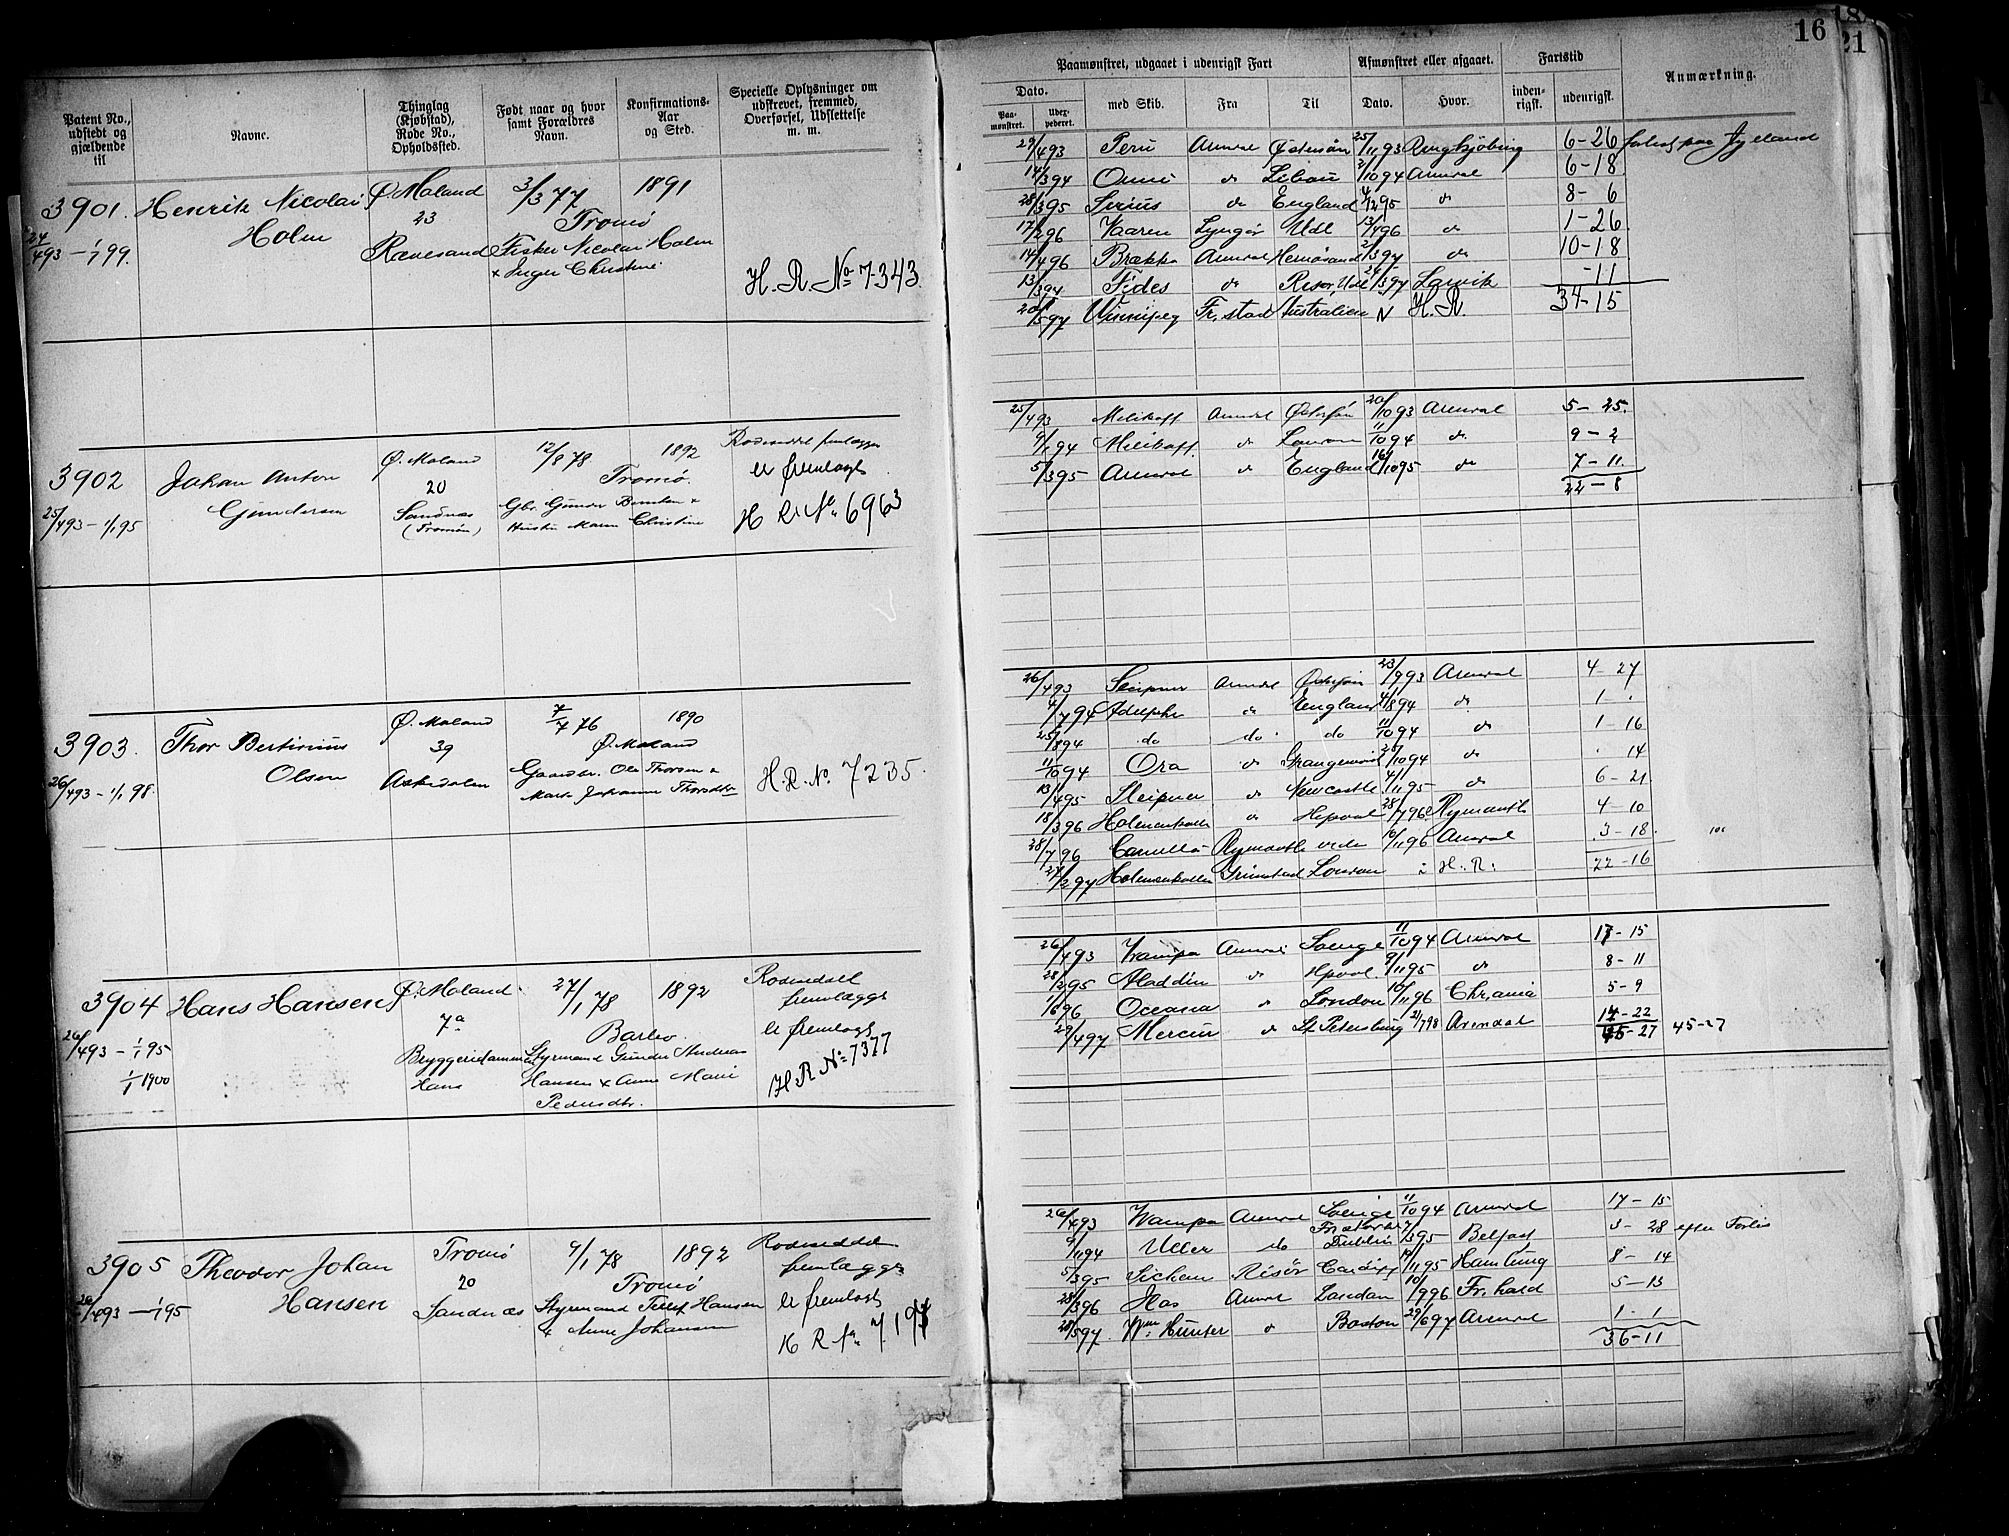 16
21
Patent No., udstedt og gjældende til
Navne.
Thinglag (Kjøbstad), Rode No., Opholdssted.
Født naar og hvor samt Forældres Navn.
Konfirmations-Aar og Sted.
Specielle Oplysninger om udskrevet, fremmed, Overførsel, Udslettelse m. m.
Paamønstret, udgaaet i udenrigsk Fart
Afmønstret eller afgaaet.
Fartstid
Anmærkning.
Dato.
Paa-mønstret.
med Skib.
Fra
Til
Dato.
Hvor.
inden-rigsk.
udenrigsk.
3901. Henrik Nicolai Ø. Moland 3/3 77 1891
Holm 23 Tromø
24/4 93 – 1/1 99. Rævesand Fisker Nicolai Holm
& Inger Christine
H. R. No 7343
29/4 93 Peru Arendal Østersøen 25/11 93 Ringkjøbing 6-26 forlist paa Jylland
14/3 94 do Libau 2/10 94 Arendal 6-18
28/3 95 Sirius do England 4/12 95 do 8-6
17/2 96 Vaaren Lyngør Udl 13/4 96 do 1-26
14/4 96 Brække Arendal Hernøsand 2/3 97 do 10-18
13/3 97 Fides do Risør, Udl 24/3 97 Larvik -11
20/5 97 Winnipeg Fr. stad Australien H. R. 34-15
3902 Johan Anton Ø. Moland 12/8 78 1892 Rodeseddel fremlægges
Gundersen 20 Tromø. er fremlagt
25/4 93 – 1/1 95 Sandnæs (Tromøn) Gbr. Gunder &
Hustru Christine
H R. No. 6963
25/4 93 Melikoff Arendal Østersøn 20/10 93 Arendal 5-25.
94 Melikoff do London 11/10 94 do 9-2
5/3 95 Arendal do England 16/10 95 do 7-11
22-8
3903. Thor Bertinius Ø. Moland 7/7 76 1890
Olsen 39 Ø. Moland
26/4 93 – 1/1 98. Askedalen Gaardbr. Ole Thorsen &
Johanne Thorsdtr
H. R. No. 7235.
26/4 93 Sleipner Arendal Østersøn 23/9 93 Arendal 4-27
4/7 94 Adelphi do England 4/8 94 do 1 -
25/8 94 do do do 11/10 94 do 1-16
11/10 94 Ora do Grangemouth 25/10 94 do 14
13/4 95 Sleipner do Newcastle 4/11 95 do 6-21
18/3 96 Holmenkollen do Hpool 28/7 96 Plymouth 4-10
28/7 96 Camilla Plymouth 16/11 96 Arendal 3-18.
27/2 97 Holmenkollen Grimstad London i H. R. 22-16
3904 Hans Hansen Ø. Moland 27/1 78 1892 Rodeseddel
7a Barbo fremlægges
26/4 93 – 1/1 95 er fremlagt
1/1 1900 Bryggeridammen Styrmand Gunder Andreas
Hans Hansen & Anne Marie
Pedersdtr.
H. R No 7377
26/4 93 Arendal 11/10 94 Arendal 17-15
28/2 95 Aladdin do Hpool. 9/11 95 do 8-11
1/6 96 Oceana do London 10/11 96 Chr,ania 5-9
29/4 97 Mercur do St. Petersburg 21/7 98 Arendal 14-22
45-27 45-27
3905 Theodor Johan Tromø 9/1 78 1892 Rodeseddel
Hansen 20 Tromø fremlægges
26/4 93 – 1/1 95 Sandnæs Styrmand Tellef Hansen er fremlagt
& Anne Johansen
H R No. 7197
26/4 93 Arendal 11/10 94 Arendal 17-15
9/11 94 Uller do Dublin 3/3 95 Belfast 3-28 efter Forlis
5/3 95 Risør Cardiff 19/11 95 Hamburg 8-14
28/3 96 Arendal London 10/9 96 Fr. hald 5-13
28/5 97. Wm Hunter do Boston 29/6 97 Arendal 1-1
36-11